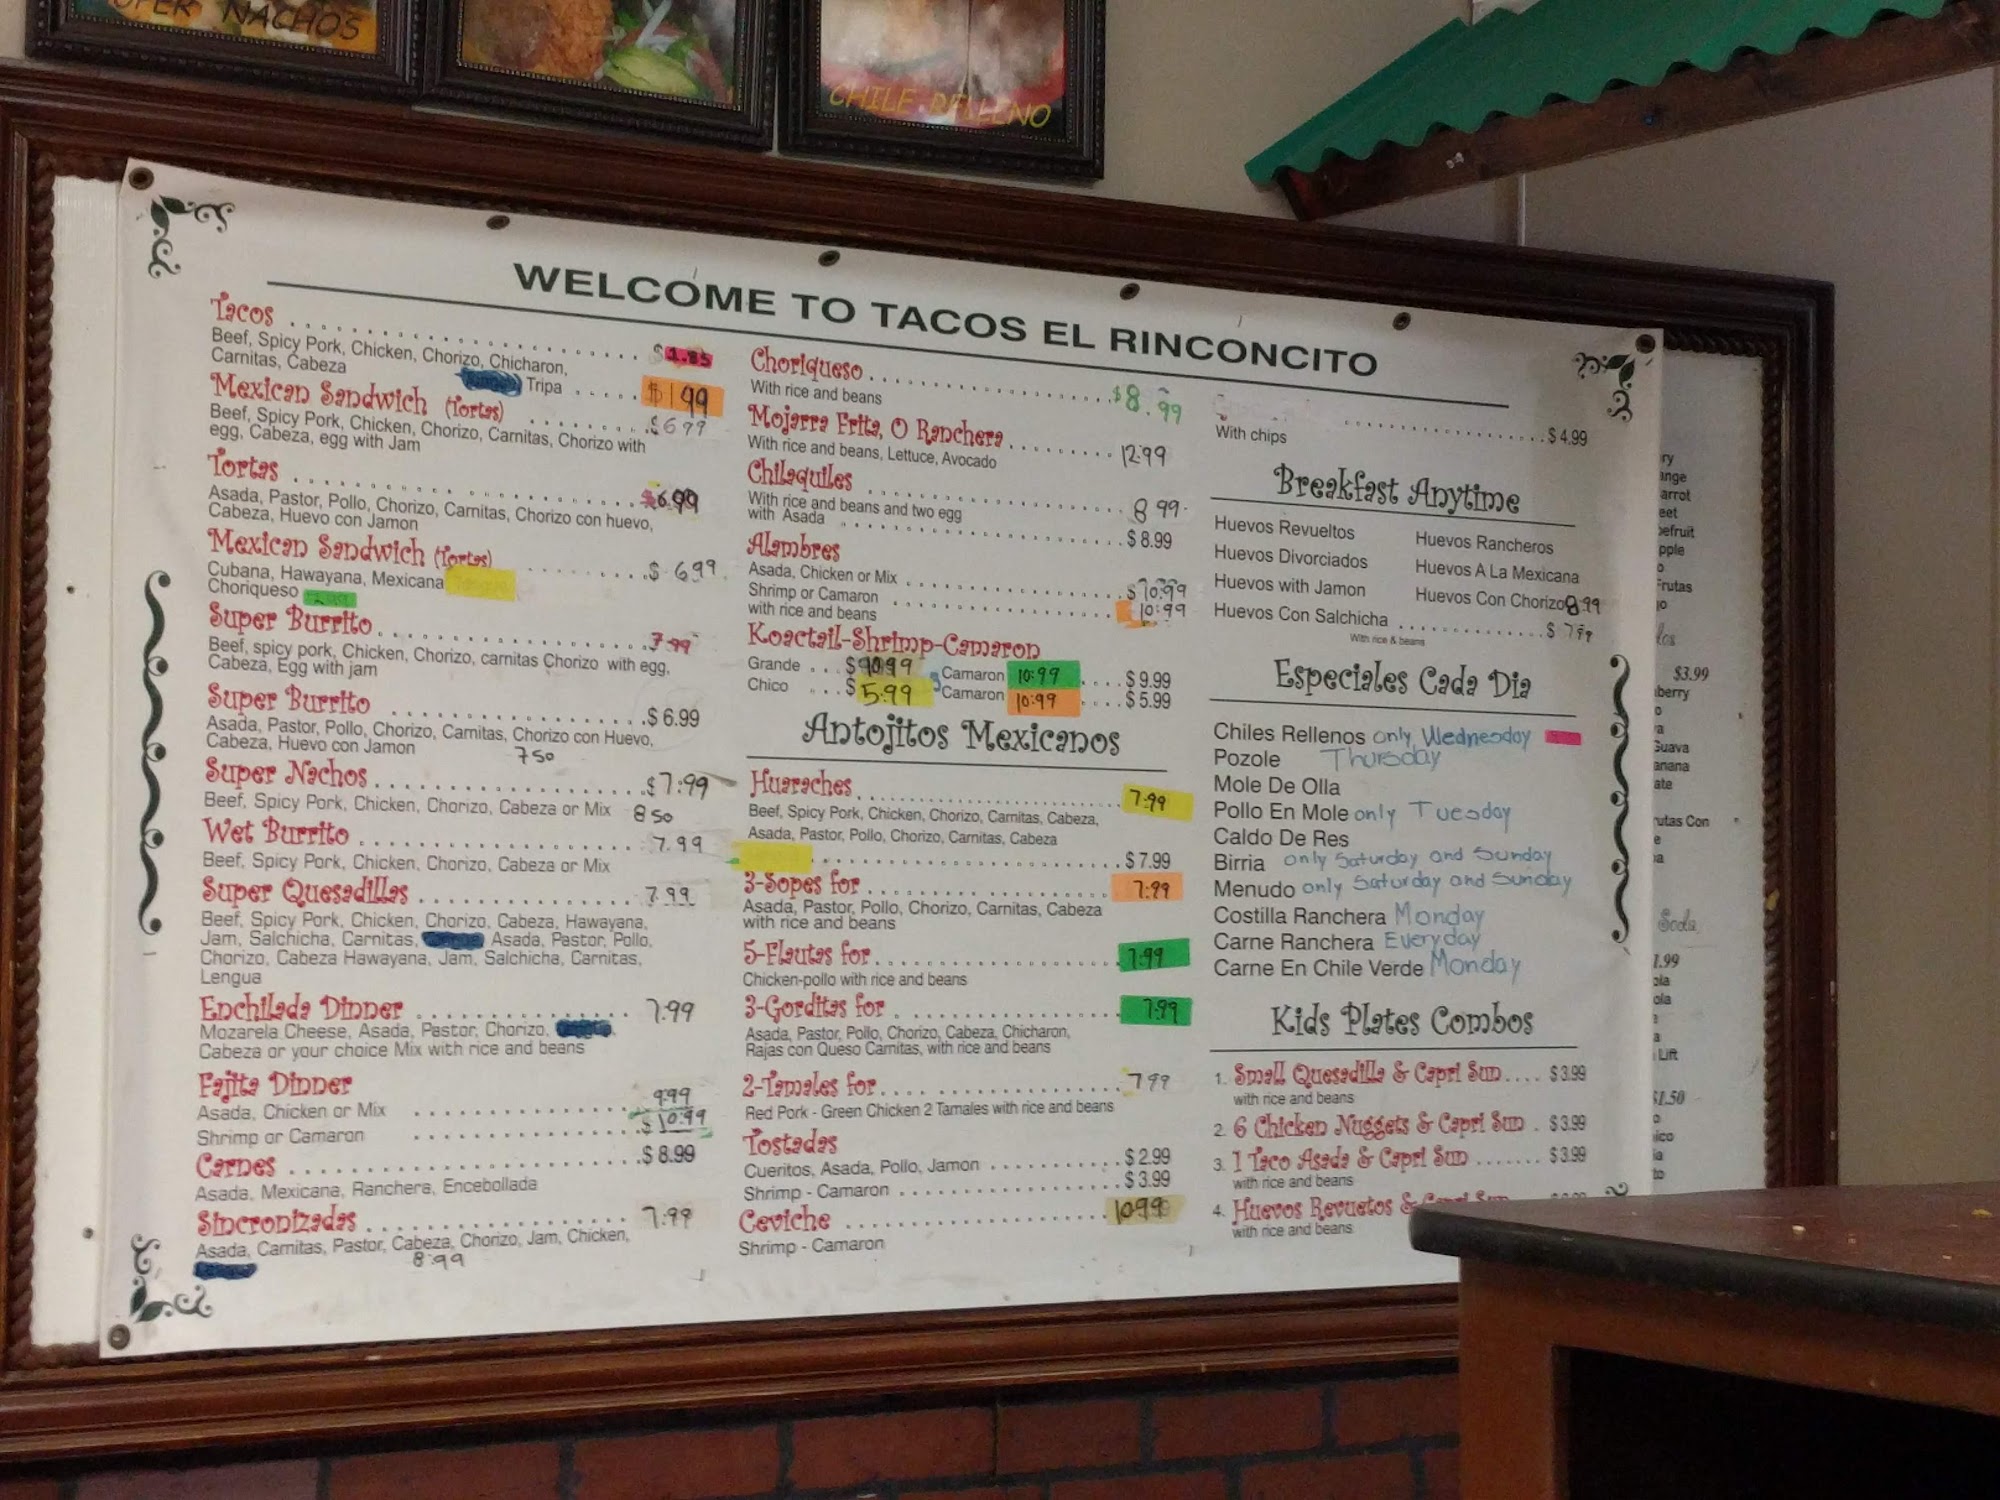 SUPER NACHOS
CHILE RELLENO
WELCOME TO TACOS EL RINCONCITO
Tacos $1.85
Beef, Spicy Pork, Chicken, Chorizo, Chicharon,
Carnitas, Cabeza
Tripa $1 99
Mexican Sandwich (Tortas) $6 99
Beef, Spicy Pork, Chicken, Chorizo, Carnitas, Chorizo with
egg, Cabeza, egg with Jam
Tortas $6.99
Asada, Pastor, Pollo, Chorizo, Carnitas, Chorizo con huevo,
Cabeza, Huevo con Jamon
Mexican Sandwich (Tortas) $6.99
Cubana, Hawayana, Mexicana
Choriqueso
Super Burrito 7.99
Beef, spicy pork, Chicken, Chorizo, carnitas Chorizo with egg,
Cabeza, Egg with jam
Super Burrito $6.99
Asada, Pastor, Pollo, Chorizo, Carnitas, Chorizo con Huevo,
Cabeza, Huevo con Jamon 750
Super Nachos $7.99
Beef, Spicy Pork, Chicken, Chorizo, Cabeza or Mix 850
Wet Burrito 7.99
Beef, Spicy Pork, Chicken, Chorizo, Cabeza or Mix
Super Quesadillas 7.99
Beef, Spicy Pork, Chicken, Chorizo, Cabeza, Hawayana,
Jam, Salchicha, Carnitas, Asada, Pastor, Pollo,
Chorizo, Cabeza Hawayana, Jam, Salchicha, Carnitas,
Lengua
Enchilada Dinner 7.99
Mozarela Cheese, Asada, Pastor, Chorizo,
Cabeza or your choice Mix with rice and beans
Fajita Dinner
Asada, Chicken or Mix 9.99
Shrimp or Camaron $10.99
Carnes $8.99
Asada, Mexicana, Ranchera, Encebollada
Sincronizadas 7.99
Asada, Carnitas, Pastor, Cabeza, Chorizo, Jam, Chicken,
8.99
Choriqueso $8.99
With rice and beans
Mojarra Frita, O Ranchera 12.99
With rice and beans, Lettuce, Avocado
Chilaquiles
With rice and beans and two egg 8 99
with Asada $8.99
Alambres
Asada, Chicken or Mix $10.99
Shrimp or Camaron 10.99
with rice and beans
Koactail-Shrimp-Camaron
Grande $10.99 Camaron 10.99 $9.99
Chico $5.99 Camaron 10.99 $5.99
Antojitos Mexicanos
Huaraches 7.99
Beef, Spicy Pork, Chicken, Chorizo, Carnitas, Cabeza,
Asada, Pastor, Pollo, Chorizo, Carnitas, Cabeza
$7.99
3-Sopes for 7.99
Asada, Pastor, Pollo, Chorizo, Carnitas, Cabeza
with rice and beans
5-Flautas for 7.99
Chicken-pollo with rice and beans
3-Gorditas for 7.99
Asada, Pastor, Pollo, Chorizo, Cabeza, Chicharon,
Rajas con Queso Carnitas, with rice and beans
2-Tamales for 7 99
Red Pork - Green Chicken 2 Tamales with rice and beans
Tostadas
Cueritos, Asada, Pollo, Jamon $2.99
Shrimp - Camaron $3.99
Ceviche 10.99
Shrimp - Camaron
With chips $4.99
Breakfast Anytime
Huevos Revueltos Huevos Rancheros
Huevos Divorciados Huevos A La Mexicana
Huevos with Jamon Huevos Con Chorizo 8.99
Huevos Con Salchicha $7.99
With rice & beans
Especiales Cada Dia
Chiles Rellenos only Wednesday
Pozole Thursday
Mole De Olla
Pollo En Mole only Tuesday
Caldo De Res
Birria only Saturday and Sunday
Menudo only Saturday and Sunday
Costilla Ranchera Monday
Carne Ranchera Everyday
Carne En Chile Verde Monday
Kids Plates Combos
1. Small Quesadilla & Capri Sun $3.99
with rice and beans
2. 6 Chicken Nuggets & Capri Sun $3.99
3. 1 Taco Asada & Capri Sun $3.99
with rice and beans
4. Huevos Revuetos & Capri Sun
with rice and beans
$3.99
Soda
1.99
Lift
$1.50